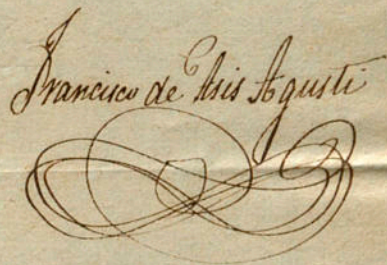 Francisco de Asis Agusti